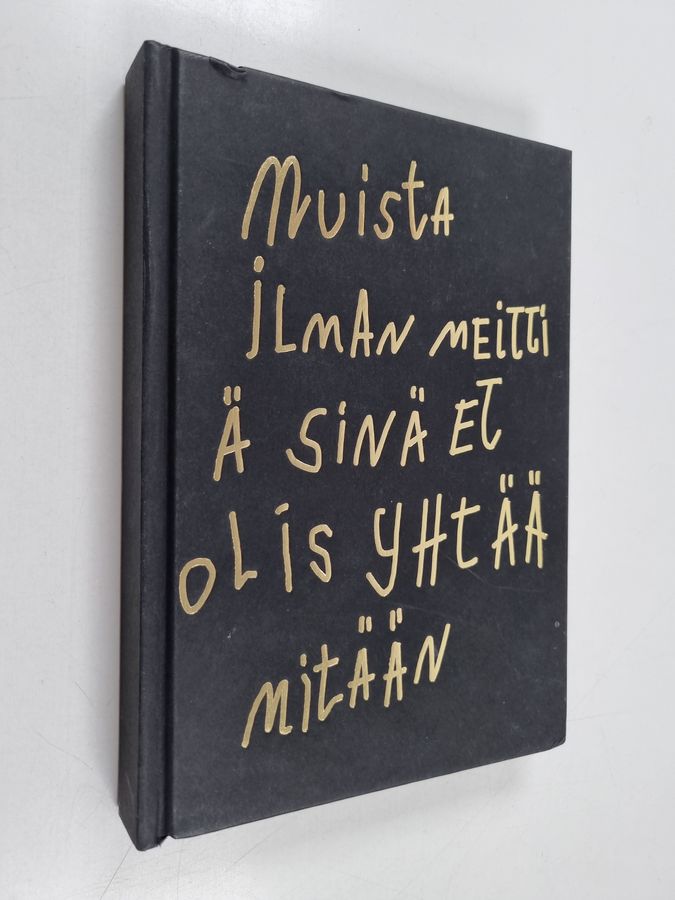 Muista
ilman meitti
ä sinä et
olis yhtää
mitään